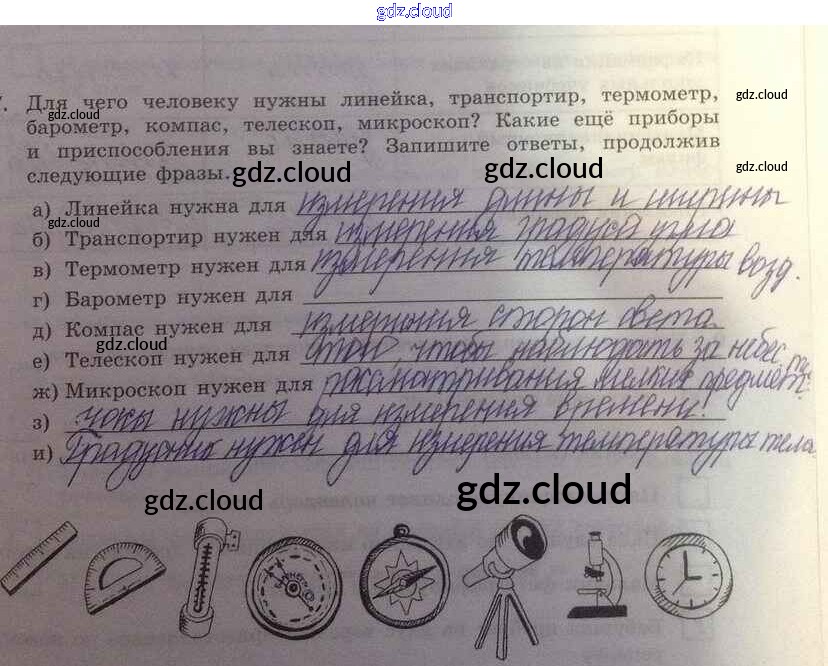 gdz.cloud
7. Для чего человеку нужны линейка, транспортир, термометр, gdz.cloud
барометр, компас, телескоп, микроскоп? Какие ещё приборы
и приспособления вы знаете? Запишите ответы, продолжив
следующие фразы. gdz.cloud gdz.cloud gdz.cloud
а) Линейка нужна для измерения длины и ширины
gdz.cloud
б) Транспортир нужен для измерения градусов угла
в) Термометр нужен для измерения температуры возд.
г) Барометр нужен для
д) Компас нужен для измерения сторон света
gdz.cloud
е) Телескоп нужен для того, чтобы наблюдать за небес.
ж) Микроскоп нужен для рассматривания мелких предмет.
з) часы нужны для измерения времени.
и) Градусник нужен для измерения температуры тела
gdz.cloud gdz.cloud